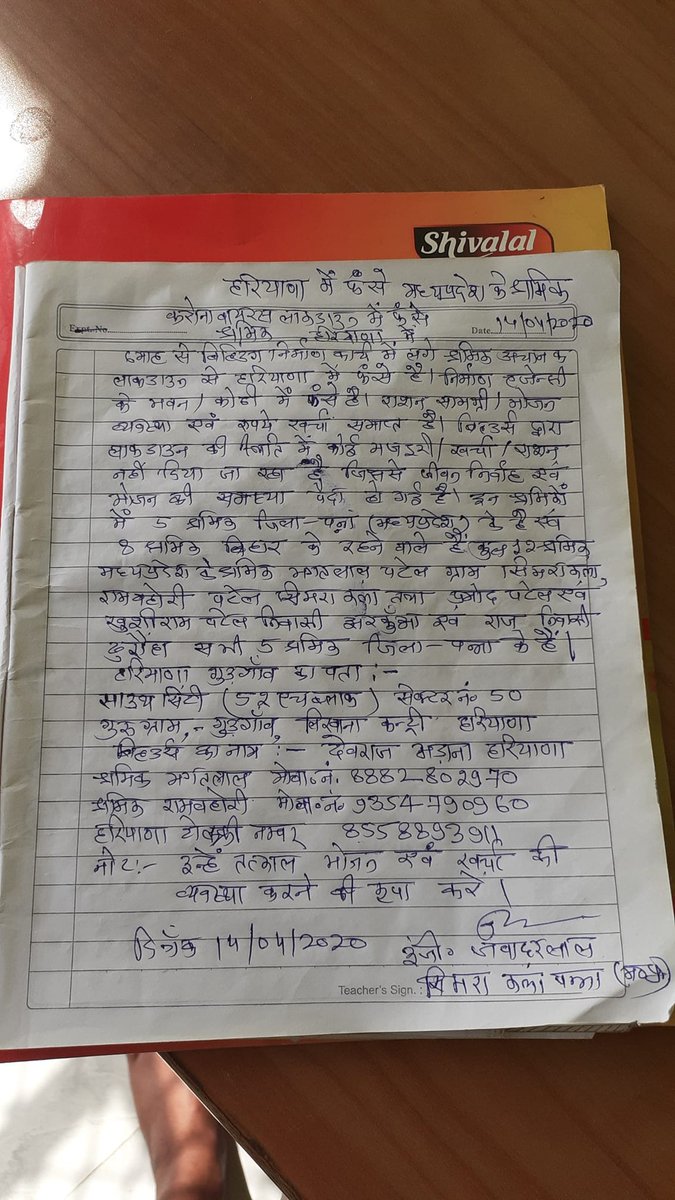 Shivalal
हरियाणा में फंसे मध्यप्रदेश के श्रमिक
करोना वायरस लाकडाउन में फंसे
Expt. No. श्रमिक हरियाणा में Date 14/04/2020
माह से बिल्डिंग निर्माण कार्य में लगे श्रमिक अचानक
लाकडाउन से हरियाणा में फंसे है। निर्माण एजेन्सी
के भवन / कोठी में फंसे है। राशन सामग्री / भोजन
व्यवस्था एवं रुपये खर्चा समाप्त है। बिल्डर्स द्वारा
लाकडाउन की स्थिति में कोई मजदूरी / खर्चा / राशन
नहीं दिया जा रहा है जिससे जीवन निर्वाह एवं
भोजन की समस्या पैदा हो गई है। इन श्रमिकों
में 5 श्रमिक जिला - पन्ना (मध्यप्रदेश) के है एवं
8 श्रमिक बिहार के रहने वाले हैं कुल श्रमिक
मध्यप्रदेश के श्रमिक भगतलाल पटेल ग्राम सिमरा कला,
रामबहोरी पटेल सिमरा कला तथा प्रमोद पटेल एवं
खुशीराम पटेल निवासी एवं राज निवासी
सभी 5 श्रमिक जिला - पन्ना के हैं।
हरियाणा गुड़गाँव का पता :-
साउथ सिटी (52 एच ब्लाक) सेक्टर नं० 50
गुरुग्राम, - गुड़गाँव, कन्ट्री हरियाणा
बिल्डर्स का नाम :- देवराज भड़ाना हरियाणा
श्रमिक भगतलाल मोबा. नं. 8882-802970
श्रमिक रामबहोरी मोबा. नं० 9354-790960
हरियाणा नम्बर 8558893911
नोट :- इन्हें तत्काल भोजन एवं खर्चा की
व्यवस्था करने की कृपा करें।
दिनाँक 14/04/2020 इंजी० जवाहरलाल
सिमरा कला पन्ना (म०प्र०)
Teacher's Sign. :